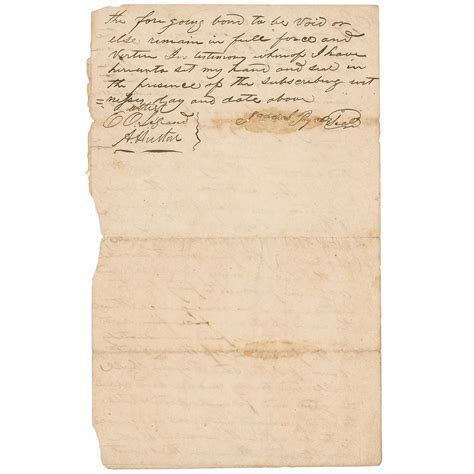 the fore going bond to be Void or
else remain in full force and
Virtue In testimony whereof I have
hereunto set my hand and seal in
the presence of the subscribing wit
=ness day and date above
Attest
Seal